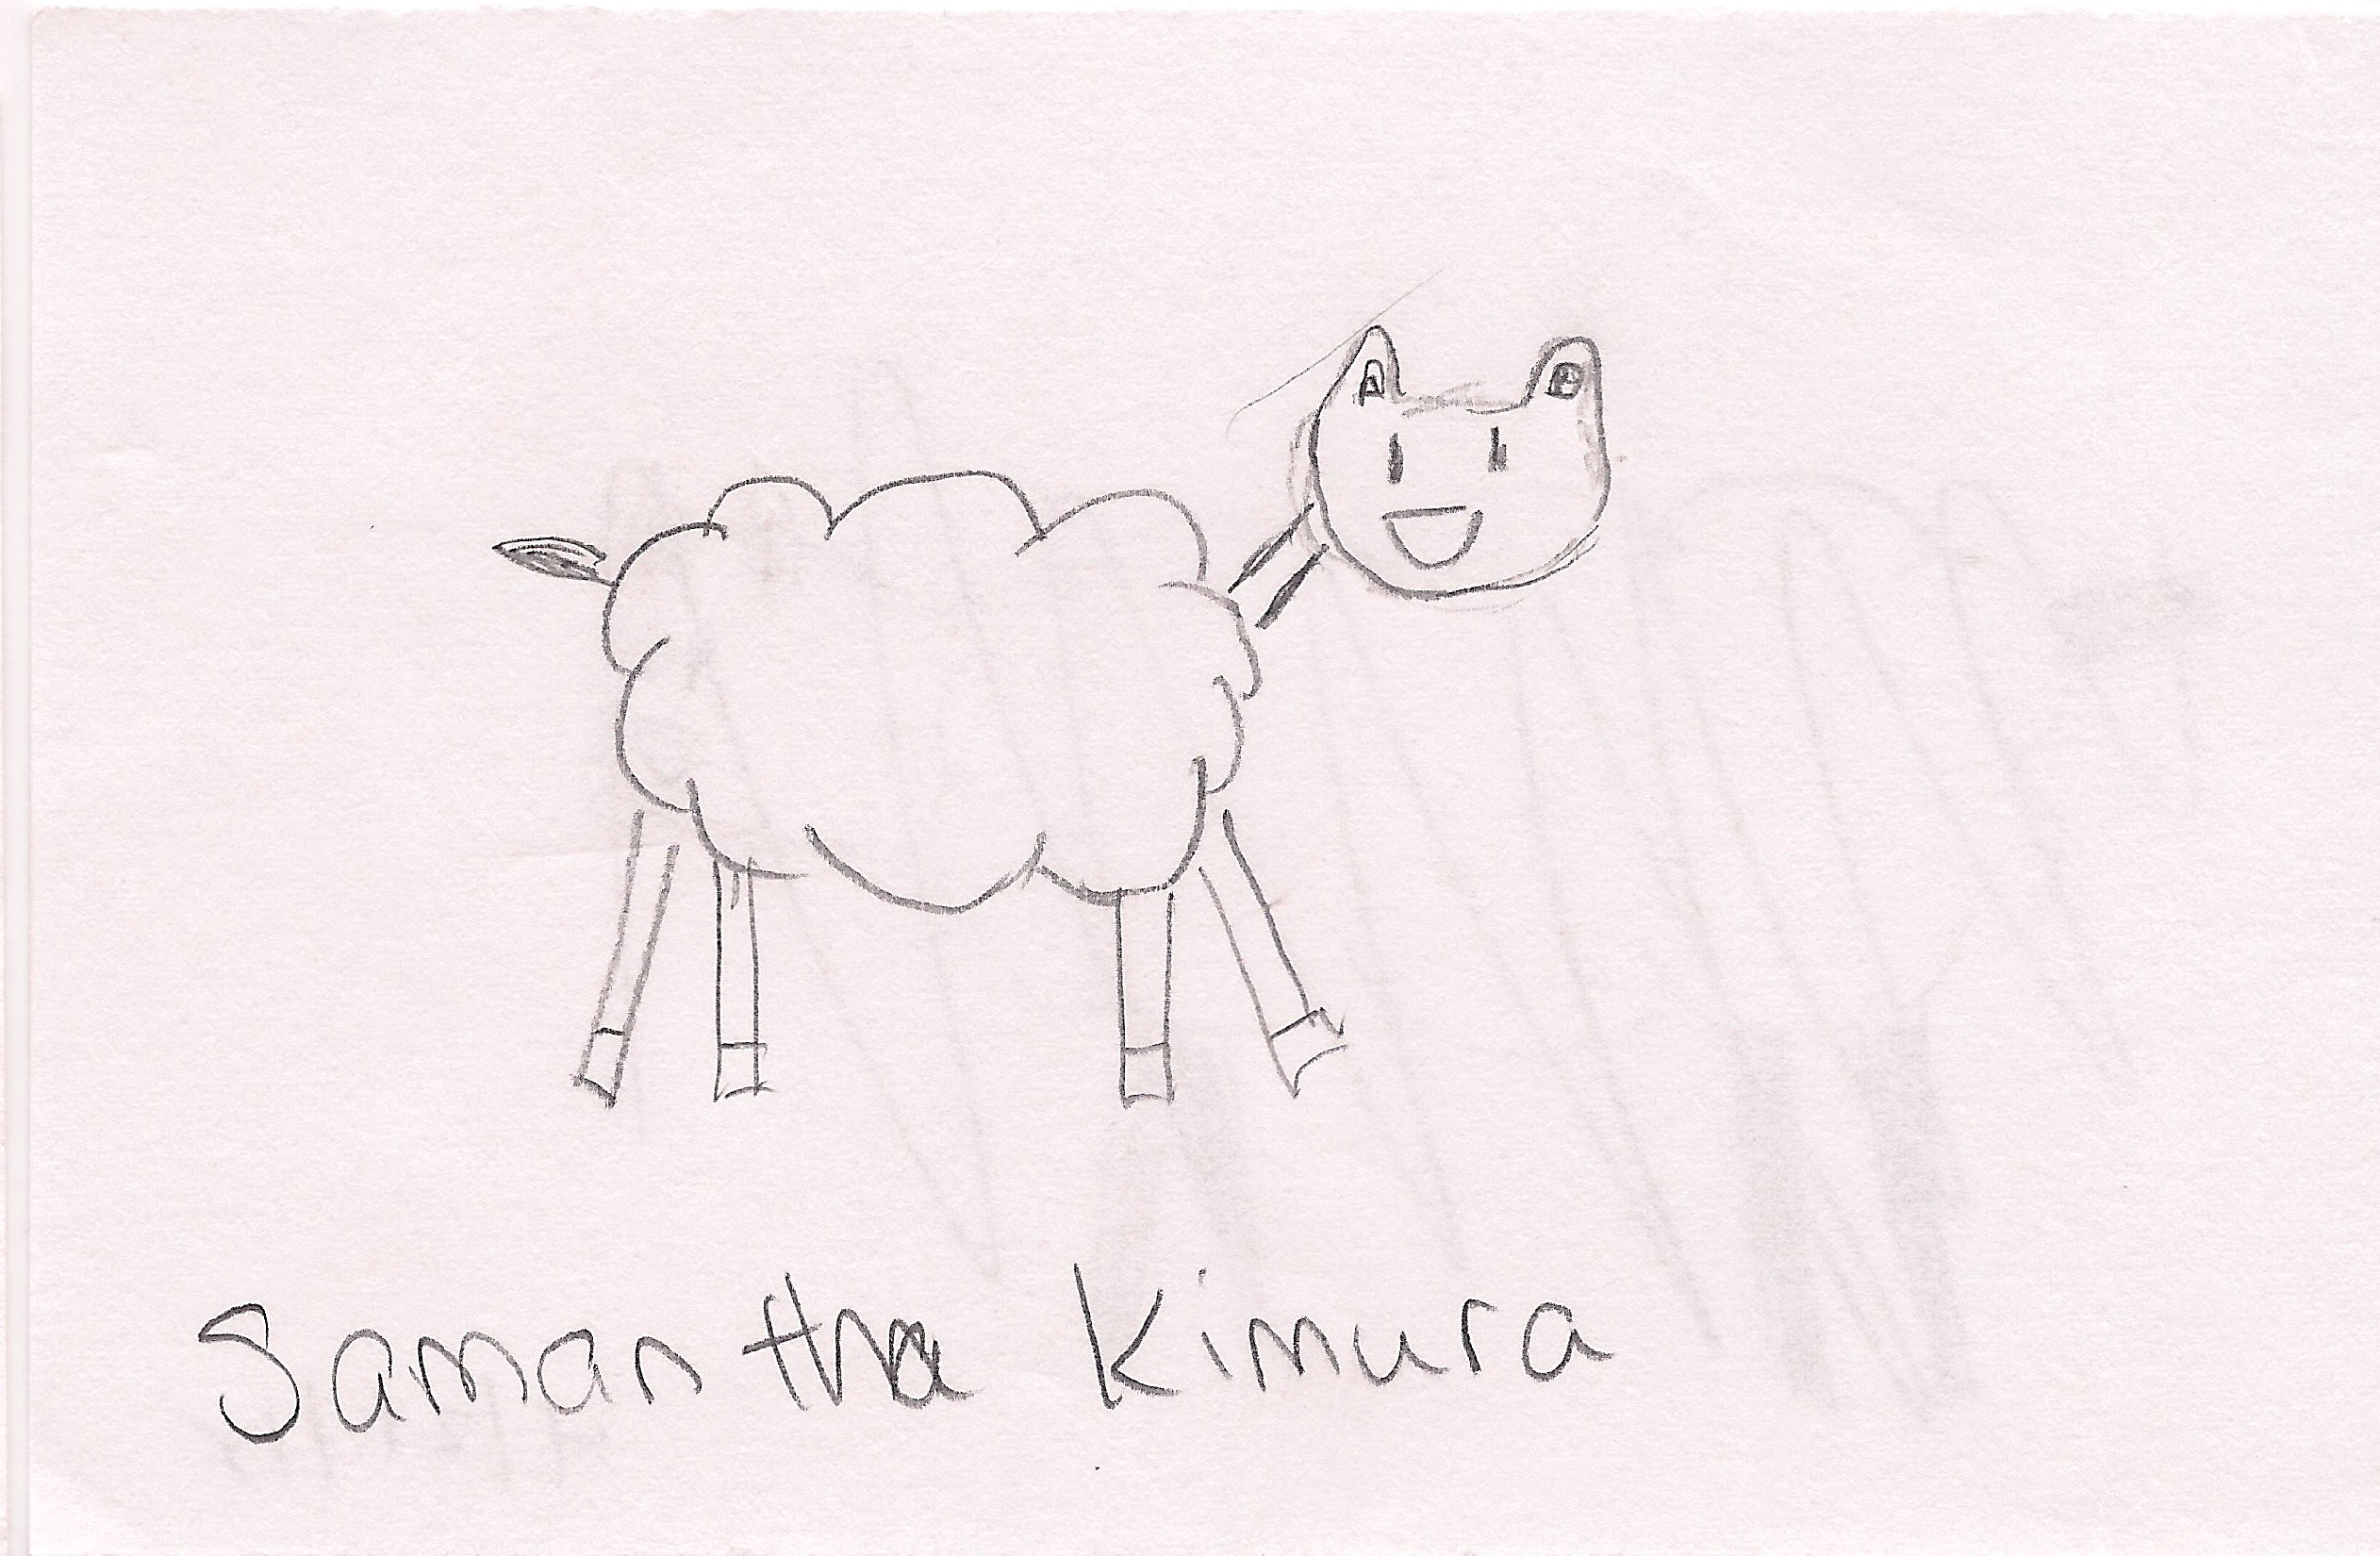 Samantha Kimura